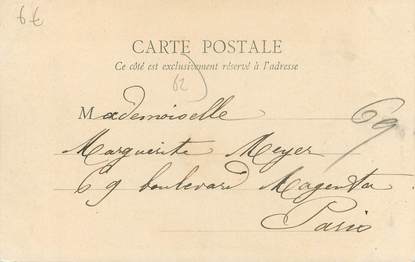 6€
CARTE POSTALE
Ce côté est exclusivement réservé à l'adresse
62
Mademoiselle
69
Marguerite Meyer
69 boulevard Magenta
Paris